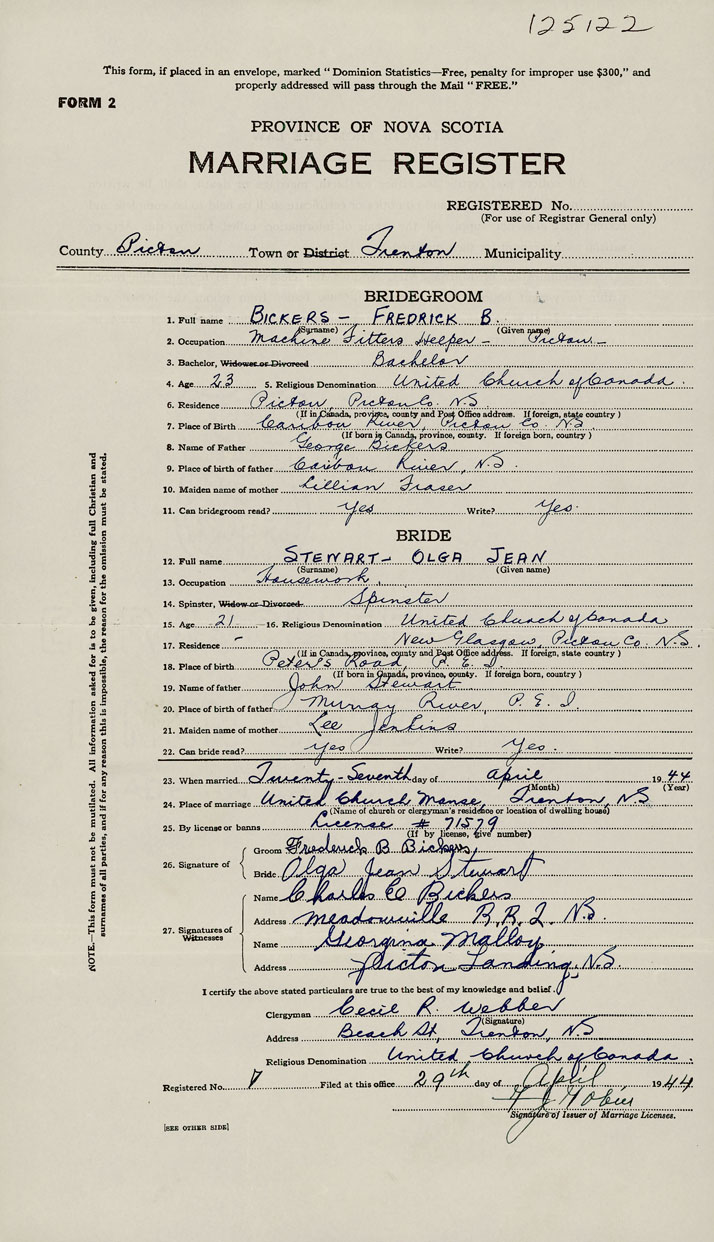 125122
This form, if placed in an envelope, marked "Dominion Statistics—Free, penalty for improper use $300," and
properly addressed will pass through the Mail "FREE."
FORM 2
PROVINCE OF NOVA SCOTIA
MARRIAGE REGISTER
REGISTERED No.
(For use of Registrar General only)
County Pictou Town or District Trenton Municipality
BRIDEGROOM
1. Full name BICKERS - FREDRICK B.
(Surname) (Given name)
2. Occupation Machine Fitters Helper - Pictou -
3. Bachelor, Widower or Divorced Bachelor
4. Age 23 5. Religious Denomination United Church of Canada.
6. Residence Pictou, Pictou Co. N.S
(If in Canada, province, county and Post Office address. If foreign, state country)
7. Place of Birth Caribou River, Pictou Co. N.S.
(If born in Canada, province, county. If foreign born, country)
8. Name of Father George Bickers
9. Place of birth of father Caribou River, N.S.
10. Maiden name of mother Lillian Fraser
11. Can bridegroom read? Yes Write? Yes.
BRIDE
12. Full name STEWART - OLGA JEAN
(Surname) (Given name)
13. Occupation Housework.
14. Spinster, Widow or Divorced Spinster
15. Age 21 —16. Religious Denomination United Church of Canada
17. Residence - New Glasgow, Pictou Co. N.S.
(If in Canada, province, county and Post Office address. If foreign, state country)
18. Place of birth Peter's Road, P.E.I.
(If born in Canada, province, county. If foreign born, country)
19. Name of father John Stewart
20. Place of birth of father Murray River, P.E.I.
21. Maiden name of mother Lee Jenkins
22. Can bride read? Yes Write? Yes.
23. When married Twenty-Seventh day of April 1944
(Month) (Year)
24. Place of marriage United Church Manse, Trenton, N.S
(Name of church or clergyman's residence or location of dwelling house)
25. By license or banns License # 71579
(If by license, give number)
26. Signature of
Groom Frederick B Bickers,
Bride Olga Jean Stewart
27. Signatures of Witnesses
Name Charles E Bickers
Address Meadowville R.R.2. N.S.
Name Georgina Malloy
Address Pictou Landing, N.S.
I certify the above stated particulars are true to the best of my knowledge and belief.
Clergyman Cecil R. Webber
(Signature)
Address Beach St, Trenton, N.S
Religious Denomination United Church of Canada.
Registered No. 7 Filed at this office 29th day of April 1944
Signature of Issuer of Marriage Licenses.
[SEE OTHER SIDE]
NOTE.—This form must not be mutilated. All information asked for is to be given, including full Christian and
surnames of all parties, and if for any reason this is impossible, the reason for the omission must be stated.